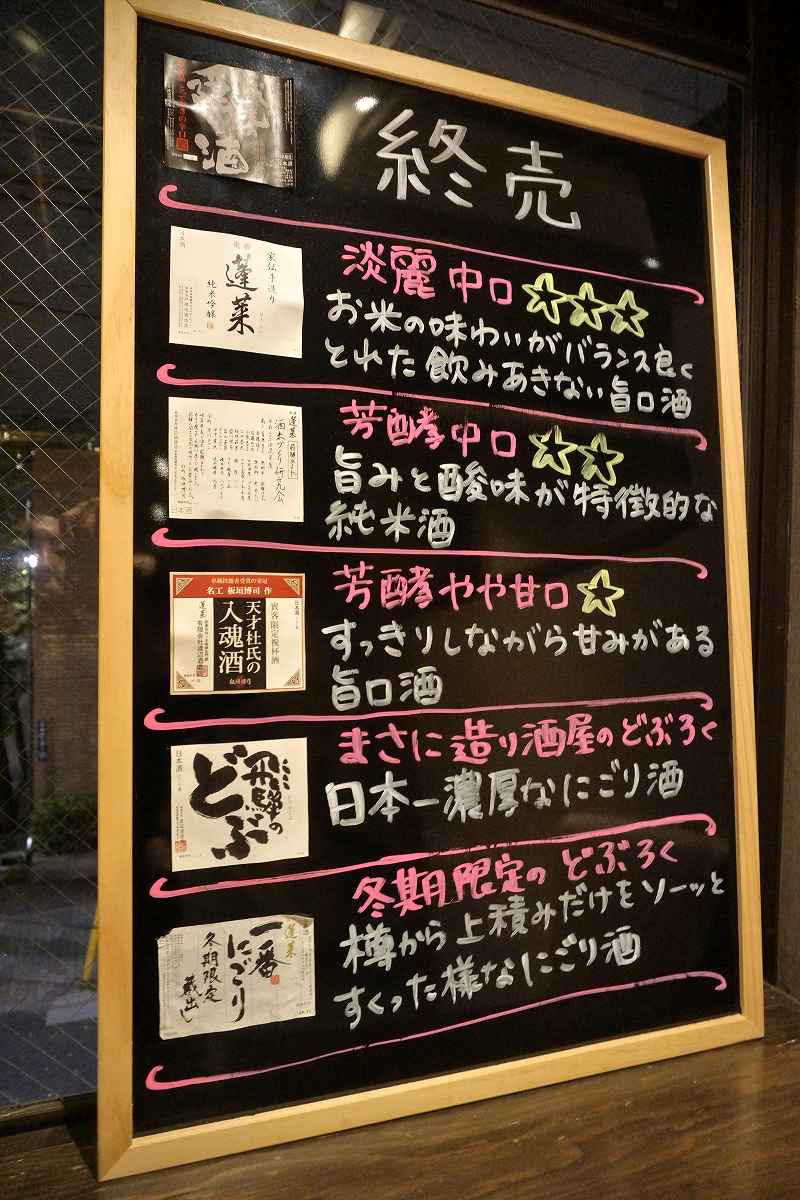 酒
終売
日本酒
家伝手造り
蓬莱
純米吟醸
淡麗中口☆☆☆
お米の味わいがバランス良く
とれた飲みあきない旨口酒
蓬莱
酒米づくり研究会
日本酒
芳酵中口☆☆
旨みと酸味が特徴的な
純米酒
名工 板垣博司 作
賓客限定祝杯酒
天才杜氏の
入魂酒
蓬莱
有限会社渡辺酒造
日本酒
芳酵やや甘口☆
すっきりしながら甘みがある
旨口酒
日本酒
飛騨の
どぶ
まさに造り酒屋のどぶろく
日本一濃厚なにごり酒
蓬莱
一番
にごり
冬期限定
蔵出し
冬期限定のどぶろく
樽から上積みだけをソーッと
すくった様なにごり酒